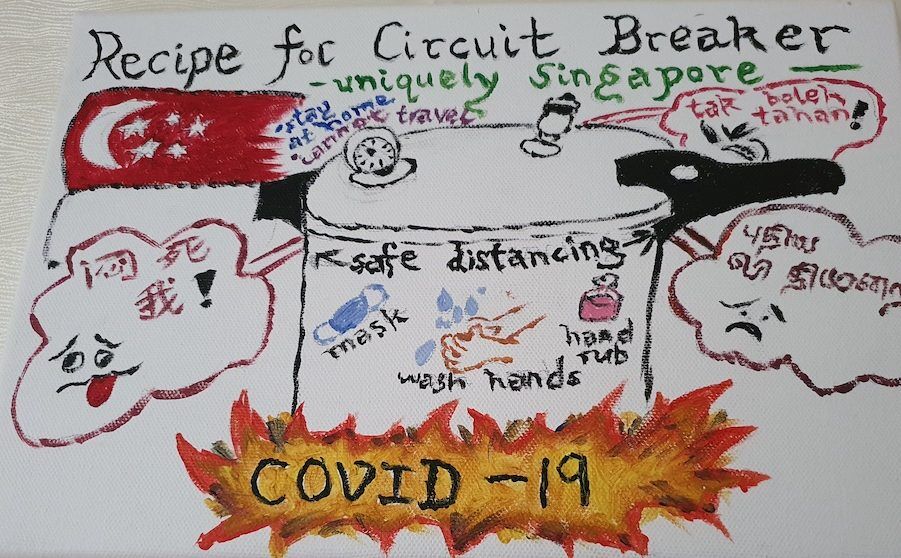 Recipe for Circuit Breaker
-uniquely Singapore
• stay
at home
• cannot travel
tak boleh
tahan!
safe distancing
闷死
我!
புதிய
mask
wash hands
hand
rub
COVID-19